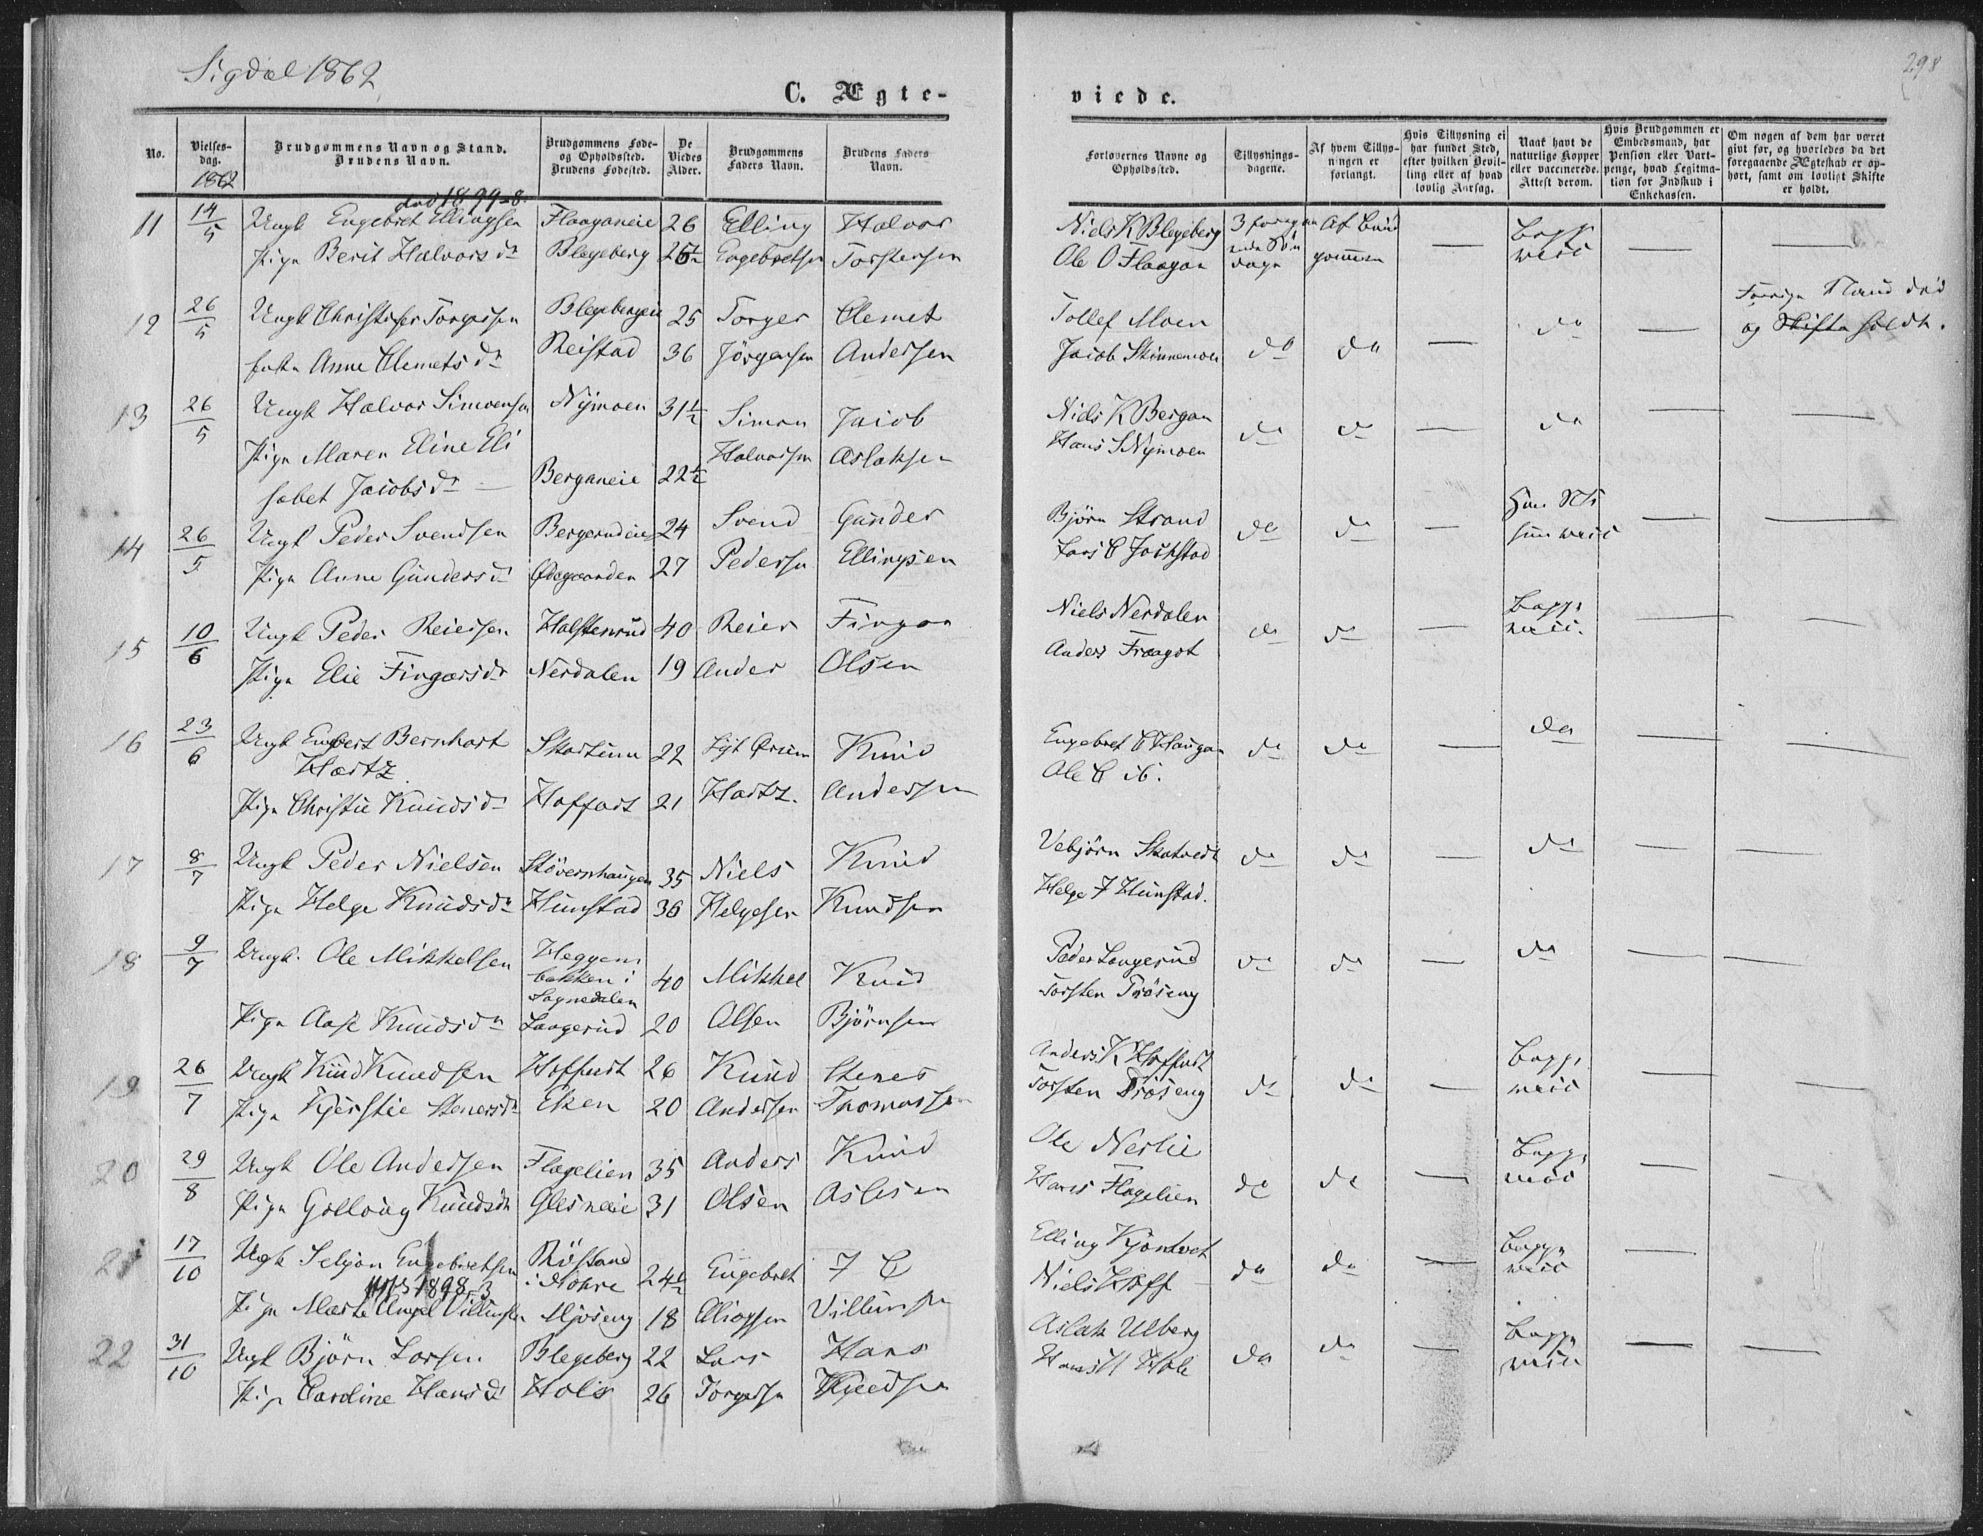 Sigdal 1862
298
C. Ægte-
viede.
No.
Vielses-
dag.
1862
Brudgommens Navn og Stand.
Brudens Navn.
Brudgommens Føde-
og Opholdssted.
Brudens Fødested.
De
Viedes
Alder.
Brudgommens
Faders Navn.
Brudens Faders
Navn.
Forlovernes Navne og
Opholdssted.
Tillysnings-
dagene.
Af hvem Tillys-
ningen er
forlangt.
Hvis Tillysning ei
har fundet Sted,
efter hvilken Bevil-
ling eller af hvad
lovlig Aarsag.
Naar havt de
naturlige Kopper
eller vaccinerede.
Attest derom.
Hvis Brudgommen er
Embedsmand, har
Pension eller Vart-
penge, hvad Legitima-
tion for Indskud i
Enkekassen.
Om nogen af dem har været
givt før, og hvorledes da det
foregaaende Ægteskab er op-
hørt, samt om lovligt Skifte
er holdt.
død 1899-8.
11 14/5 Ungk Engebret Ellingsen Flaaganeie 26 Elling Halvor Niels K Blegeberg
Pige Berit Halvorsdr Blegeberg 26½ Engebretsen Torstensen Ole O Flaagan
12 26/5 Ungk Christofer Torgersen Blegebergeie 25 Torger Clemet Tollef Moen do Forrige Mand død
og Skifte holdt.
Enke Anne Clemetsdr Reistad 36 Jörgensen Andersen Jacob Skinnemoen do do
13 26/5 Ungk Halvor Simonsen Nymoen 31½ Simon Jacob Niels K Bergan do
Pige Maren Eline Eli Halvorsen Aslaksen Hans S Nymoen do do
sabet Jacobsdr Berganeie 22½
14 26/5 Ungk Peder Svendsen Bergerudeie 24 Svend Gunder Björn Strand do do
Pige Anne Gundersdr Ødegaarden 27 Pedersen Ellingsen
15 10/6 Ungk Peder Reiersen Halstenrud 40 Reier Fingar Niels Nerdalen do do
Pige Elie Fingarsdr Nerdalen 19 Ander Olsen Anders Fraagot
16 23/6 Ungk Bernhart 22 Knud Engebret C Haugan do do do
Hartz Ole C ib.
Pige Christie Knudsdr Hoffart 21 Hartz. Andersen
17 8/7 Ungk Peder Nielsen Stövernhaugen 35 Niels Knud Vebjörn Skatvedt do do do
Pige Helge Knudsdr Hunstad 36 Helgesen Knudsen Helge F Hunstad.
18 9/7 Ungk. Ole Mikkelsen Heggens
bakken i
Sognedalen 40 Mikkel Knud Peder Laagerud do do do
Pige Aase Knudsdr Laagerud 20 Olsen Björnsen Torsten Pröseng
19 26/7 Ungk Knud Knudsen Hoffart 26 Knud Stener Anders K Hoffart
Pige Kjerstie Stenersdr Eken 20 Andersen Thomassen Torsten Pröseng do do
20 29/8 Ungk Ole Andersen Flagelien 35 Anders Knud Ole Nerlie
Pige Golloug Knudsdr Glesneeie 31 Olsen Aslesen Hans Flagelien do do
21 17/10 Ungk Seljon Engebretsen Röstand
i Nore 24½ Engebret F C Elling Kjöntvet do do
1898-3
Pige Marte Villumsdr Mjöseng 18 Ellingsen Villumsen Niels Hoff
22 31/10 Ungk Björn Larsen Blegeberg 22 Lars Hans Aslak Ulberg do do
Pige Caroline Hansdr Hole 26 Torgersen Hans H Hole